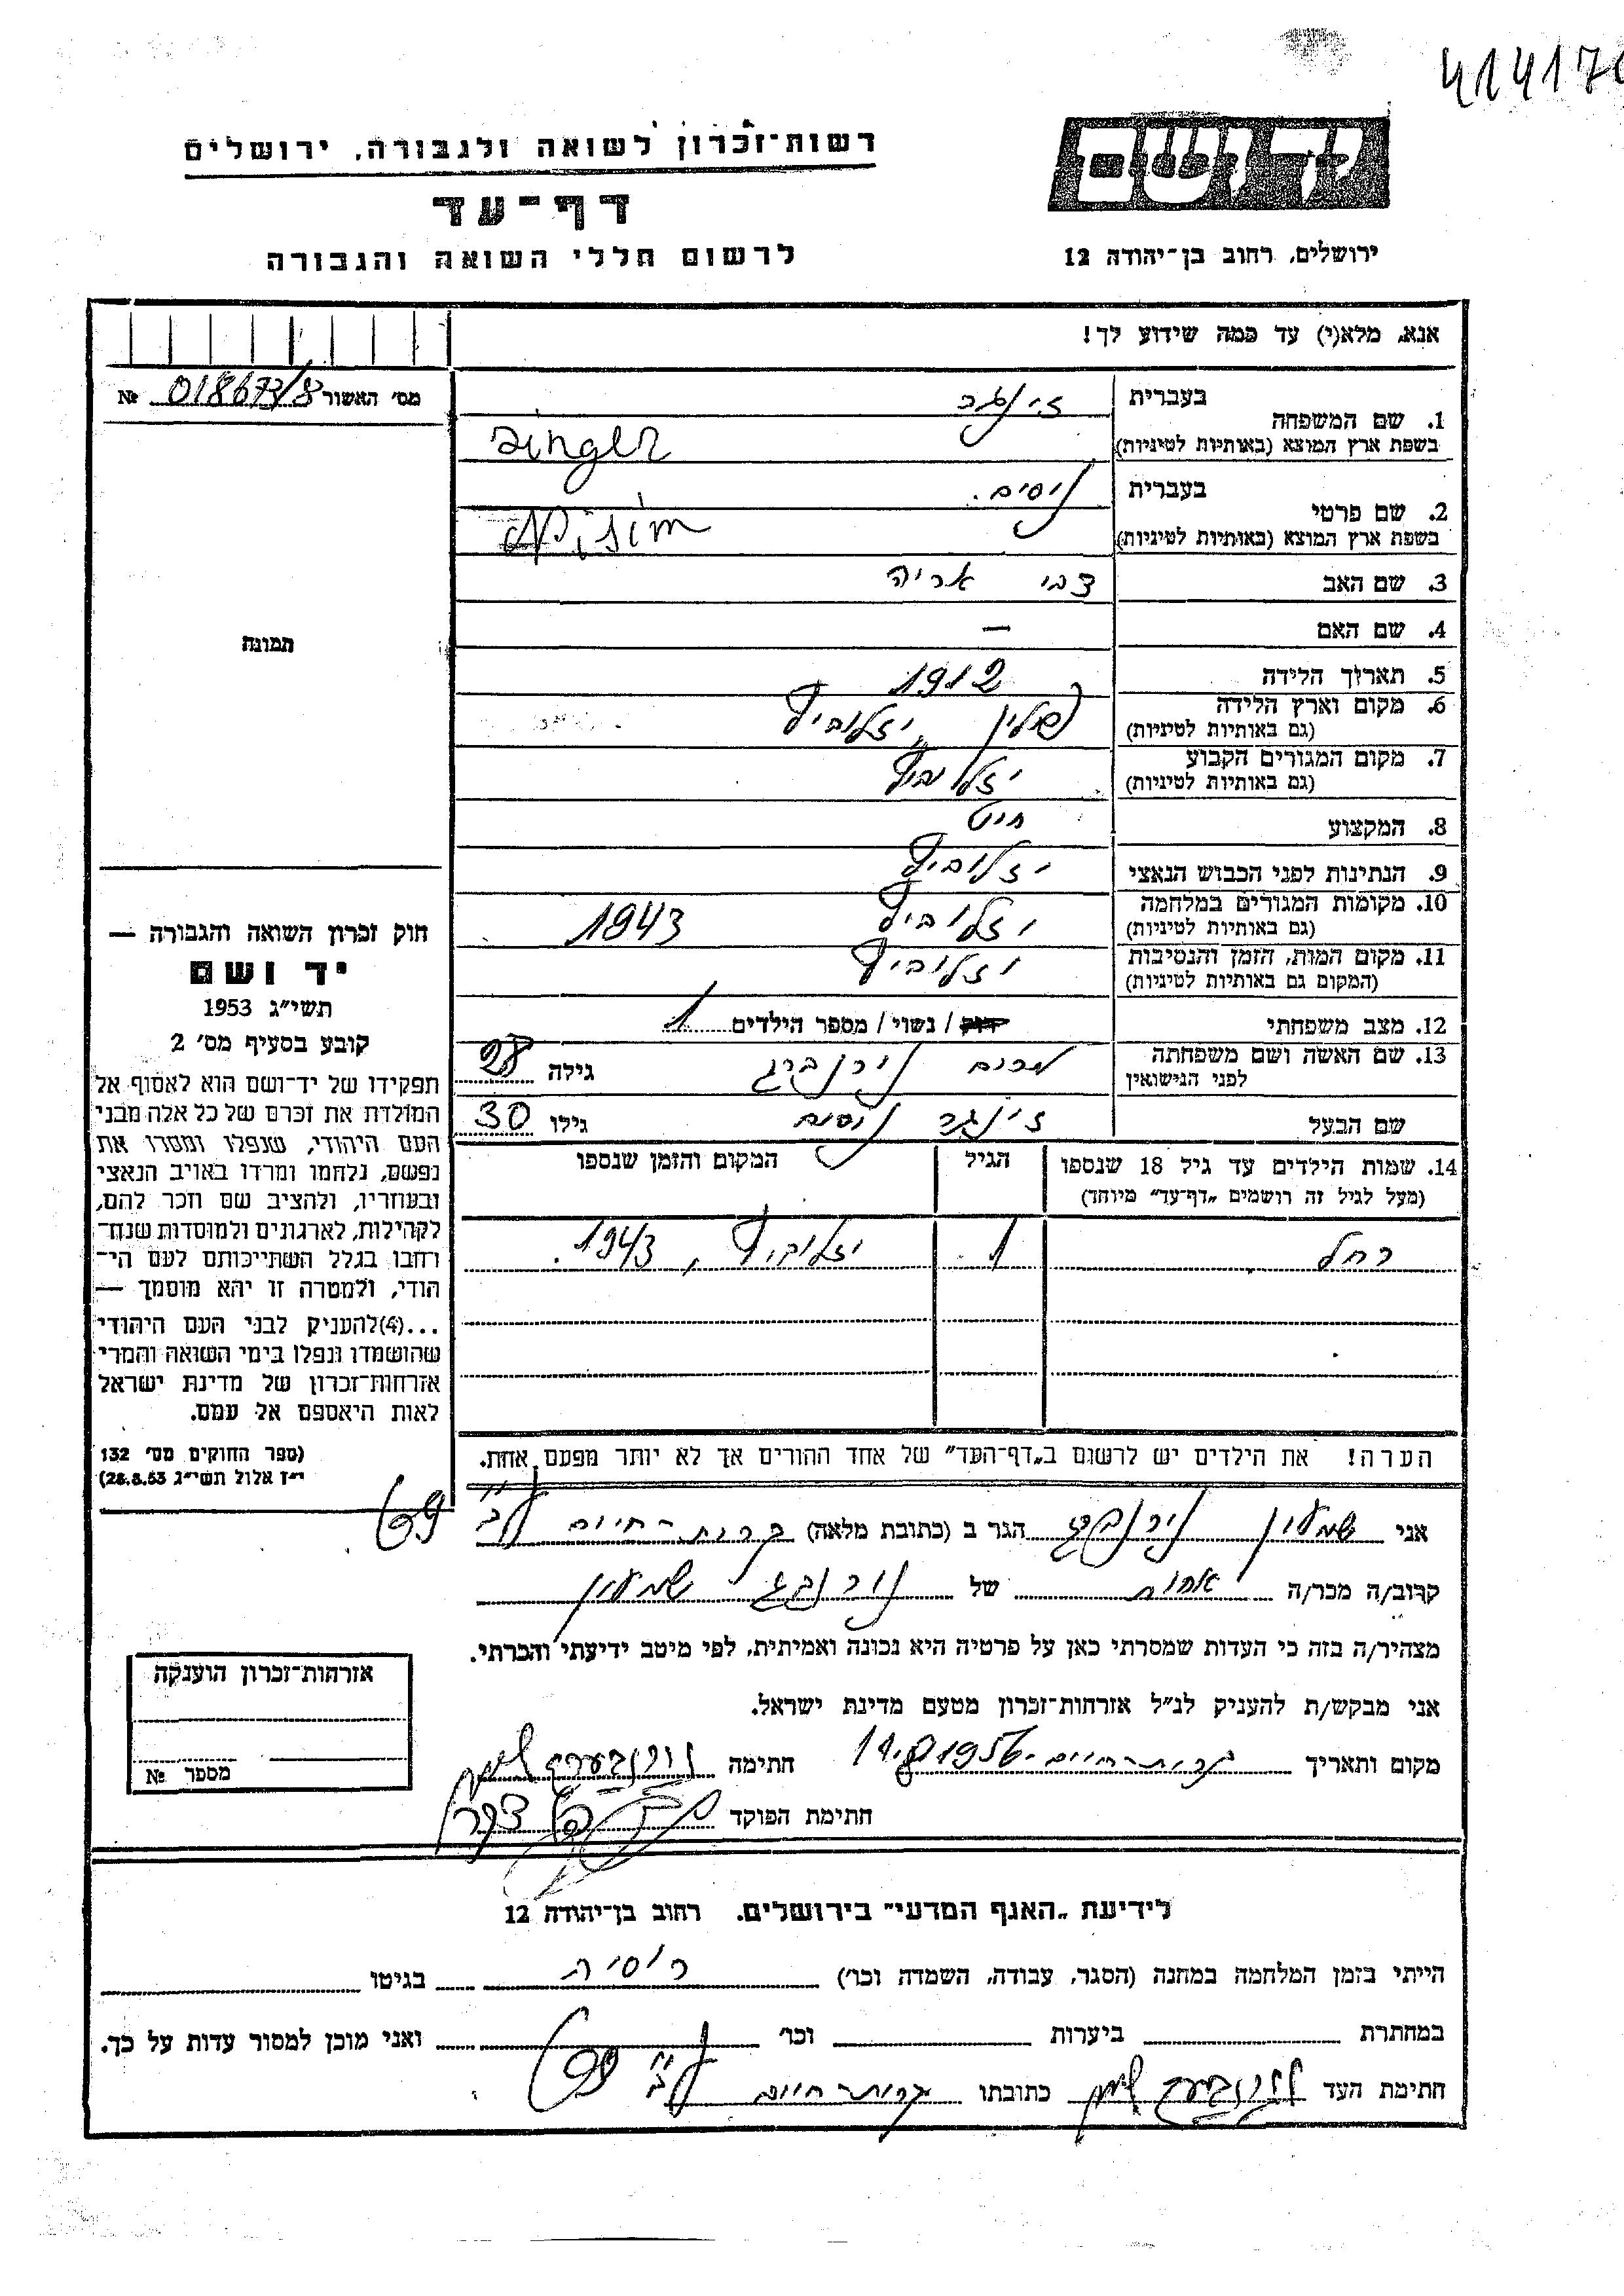 414170
רשות־זכרון לשואה ולגבורה, ירושלים
דף־עד
לרשום חללי השואה והגבורה
יד ושם
ירושלים, רחוב בן־יהודה 12
אנא, מלא(י) עד כמה שידוע לך!
מס' האשור 018673/8 №
תמונה
1. שם המשפחה בעברית זינגר
בשפת ארץ המוצא (באותיות לטיניות) Singer
2. שם פרטי בעברית ניסים.
בשפת ארץ המוצא (באותיות לטיניות) Nisim
3. שם האב צבי אריה
4. שם האם —
5. תאריך הלידה 1912
6. מקום וארץ הלידה פולין יזלוביץ
(גם באותיות לטיניות)
7. מקום המגורים הקבוע יזלוביץ
(גם באותיות לטיניות)
8. המקצוע חייט
9. הנתינות לפני הכבוש הנאצי יזלוביץ
10. מקומות המגורים במלחמה יזלוביץ 1943
(גם באותיות לטיניות)
11. מקום המות, הזמן והנסיבות יזלוביץ
(המקום גם באותיות לטיניות)
12. מצב משפחתי רווק / נשוי / מספר הילדים 1
13. שם האשה ושם משפחתה מרים נירנברג גילה 28
לפני הנישואין
שם הבעל זינגר ניסים גילו 30
14. שמות הילדים עד גיל 18 שנספו הגיל המקום והזמן שנספו
(מעל לגיל זה רושמים „דף־עד" מיוחד)
רחל 1 יזלוביץ, 1943.
הערה! את הילדים יש לרשום ב„דף־העד" של אחד ההורים אך לא יותר מפעם אחת.
חוק זכרון השואה והגבורה —
יד ושם
תשי"ג 1953
קובע בסעיף מס' 2
תפקידו של יד־ושם הוא לאסוף אל
המולדת את זכרם של כל אלה מבני
העם היהודי, שנפלו ומסרו את
נפשם, נלחמו ומרדו באויב הנאצי
ובעוזריו, ולהציב שם וזכר להם,
לקהילות, לארגונים ולמוסדות שנח־
רבו בגלל השתייכותם לעם הי־
הודי, ולמטרה זו יהא מוסמך —
...(4)להעניק לבני העם היהודי
שהושמדו ונפלו בימי השואה והמרי
אזרחות־זכרון של מדינת ישראל
לאות היאספם אל עמם.
(ספר החוקים מס' 132
י"ז אלול תשי"ג 28.8.53)
אני שמעון נירנברג הגר ב (כתובת מלאה) קרית-חיים
קרוב/ה מכר/ה אחות של נורנברג שמעון
מצהיר/ה בזה כי העדות שמסרתי כאן על פרטיה היא נכונה ואמיתית, לפי מיטב ידיעתי והכרתי.
אני מבקש/ת להעניק לנ"ל אזרחות־זכרון מטעם מדינת ישראל.
מקום ותאריך קרית-חיים חתימה
חתימת הפוקד
אזרחות־זכרון הוענקה
מספר №
לידיעת „האגף המדעי" בירושלים. רחוב בן־יהודה 12
הייתי בזמן המלחמה במחנה (הסגר, עבודה, השמדה וכו') רוסיה בגיטו
במחתרת ביערות וכו' ואני מוכן למסור עדות על כך.
חתימת העד כתובתו קרית-חיים